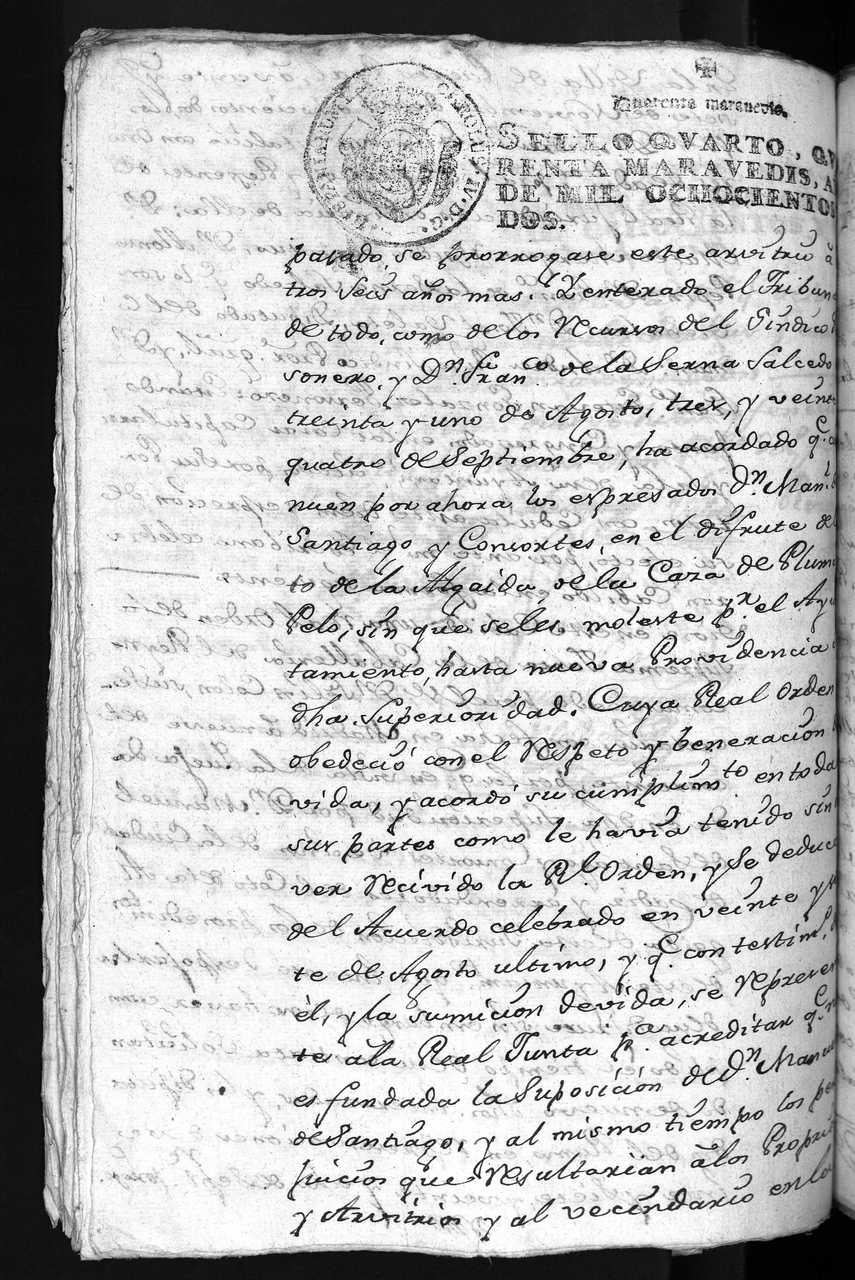 Quarenta maravedis.
CAROLUS IV D G HISPANIARUM
SELLO QVARTO, QV
RENTA MARAVEDIS, A
DE MIL OCHOCIENTOS
DOS.
pasado, se prorrogase este arvitrio á
tros seis años mas. Y enterado el Tribun
de todo, como de los Recursos del Sindico
sonero, y Dn. Franco. de la Serna Salcedo
treinta y uno de Agosto, tres, y veint
quatro de Septiembre, ha acordado q.e
nuen por ahora los espresados Dn. Manl.
Santiago y Consortes, en el disfrute de
to de la Algaida de la Caza de Pluma
Pelo, sin que se les moleste pr. el Ayu
tamiento, hasta nueva Providencia
dha. Superioridad. Cuya Real Orden
obedeció con el Respeto y beneracion
vida, y acordó su cumplimto. en toda
sus partes como le havia tenido sin
ver Recivido la Rl. Orden, y se deduce
del Acuerdo celebrado en veinte y
te de Agosto ultimo, y q.e con testim.o
él, y la sumicion devida, se represen
te a la Real Junta p.a acreditar q.e
es fundada la Suposicion de Dn. Manu
de Santiago, y al mismo tiempo los per
juicios que Resultarian a los Propri
y Arvitrios y al vecindario en lo